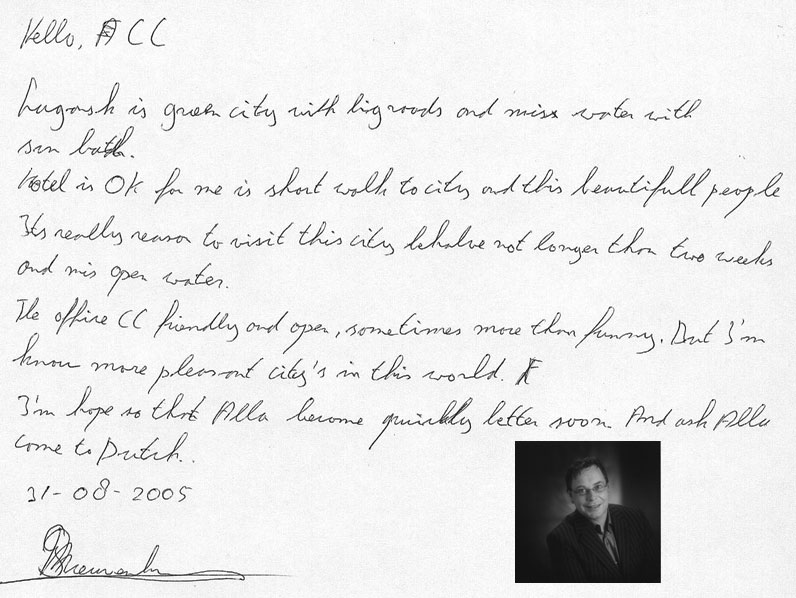 Hello, A CC
Lugansk is green city with big roads and miss water with
sun bath.
Hotel is OK for me is short walk to city and this beautifull people
Its really reason to visit this city behalve not longer than two weeks
and mis open water.
The office CC friendly and open, sometimes more than funny. But I'm
know more pleasant city's in this world.
I'm hope so that Alla become quickly letter soon. And ask Alla
come to Dutch..
31-08-2005